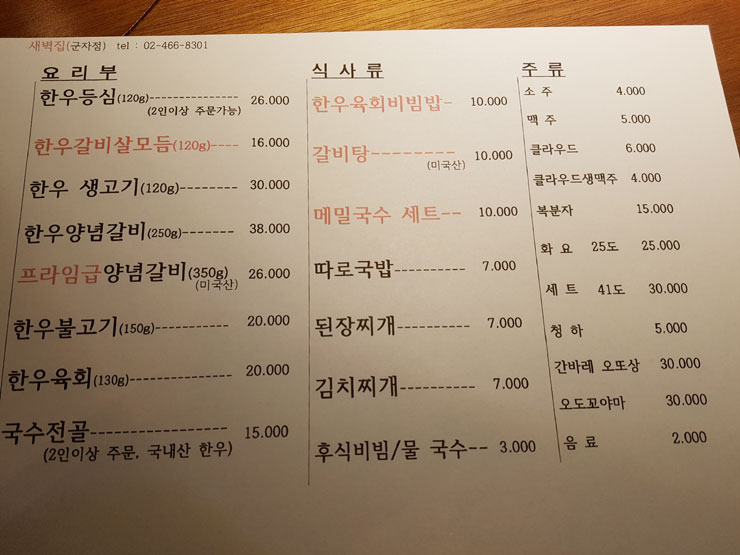 새벽집(군자점) tel : 02-466-8301
요 리 부
한우등심(120g)--------------- 26.000
(2인이상 주문가능)
한우갈비살모듬(120g)---- 16.000
한우 생고기(120g)-------- 30.000
한우양념갈비(250g)------- 38.000
프라임급양념갈비(350g) 26.000
(미국산)
한우불고기(150g)---------- 20.000
한우육회(130g)-------------- 20.000
국수전골----------------- 15.000
(2인이상 주문, 국내산 한우)
식 사 류
한우육회비빔밥- 10.000
갈비탕-------- 10.000
(미국산)
메밀국수 세트-- 10.000
따로국밥---------- 7.000
된장찌개---------- 7.000
김치찌개---------- 7.000
후식비빔/물 국수-- 3.000
주 류
소 주 4.000
맥 주 5.000
클라우드 6.000
클라우드생맥주 4.000
복분자 15.000
화 요 25도 25.000
세 트 41도 30.000
청 하 5.000
간바레 오또상 30.000
오도꼬야마 30.000
음 료 2.000